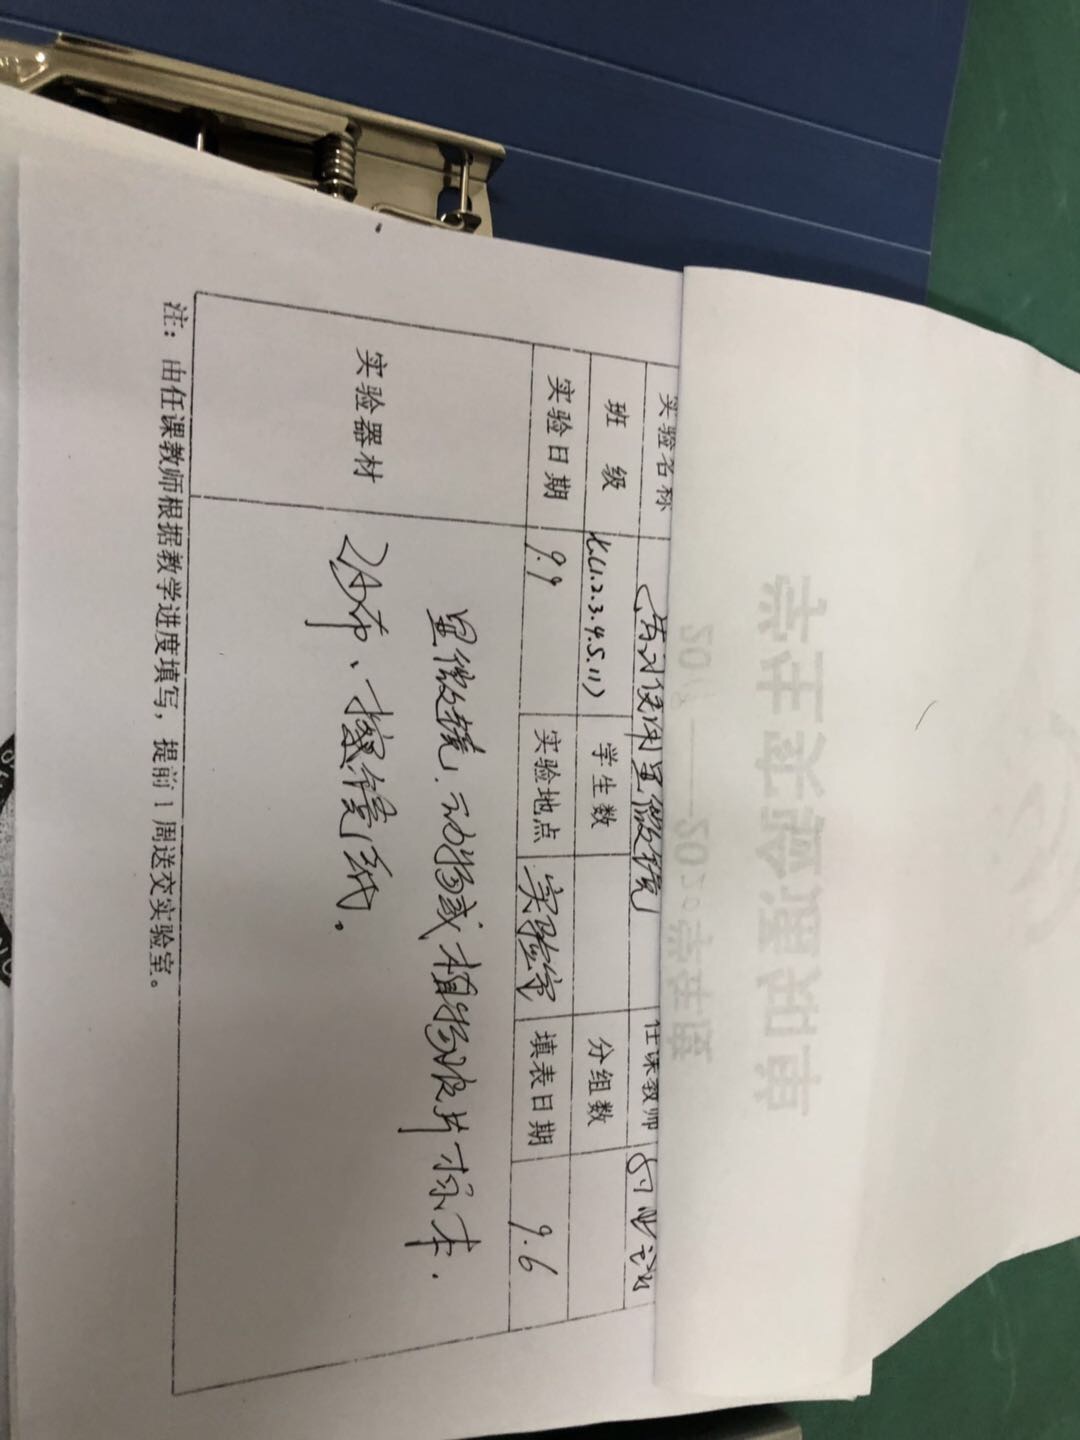 实验名称 练习使用显微镜 任课教师
班 级 七(1.2.3.4.5.11) 学生数 分组数
实验日期 9.9 实验地点 实验室 填表日期 9.6
实验器材 显微镜、动物或植物玻片标本、
纱布、擦镜纸。
注：由任课教师根据教学进度填写，提前1周送交实验室。
学生实验通知单
学年度